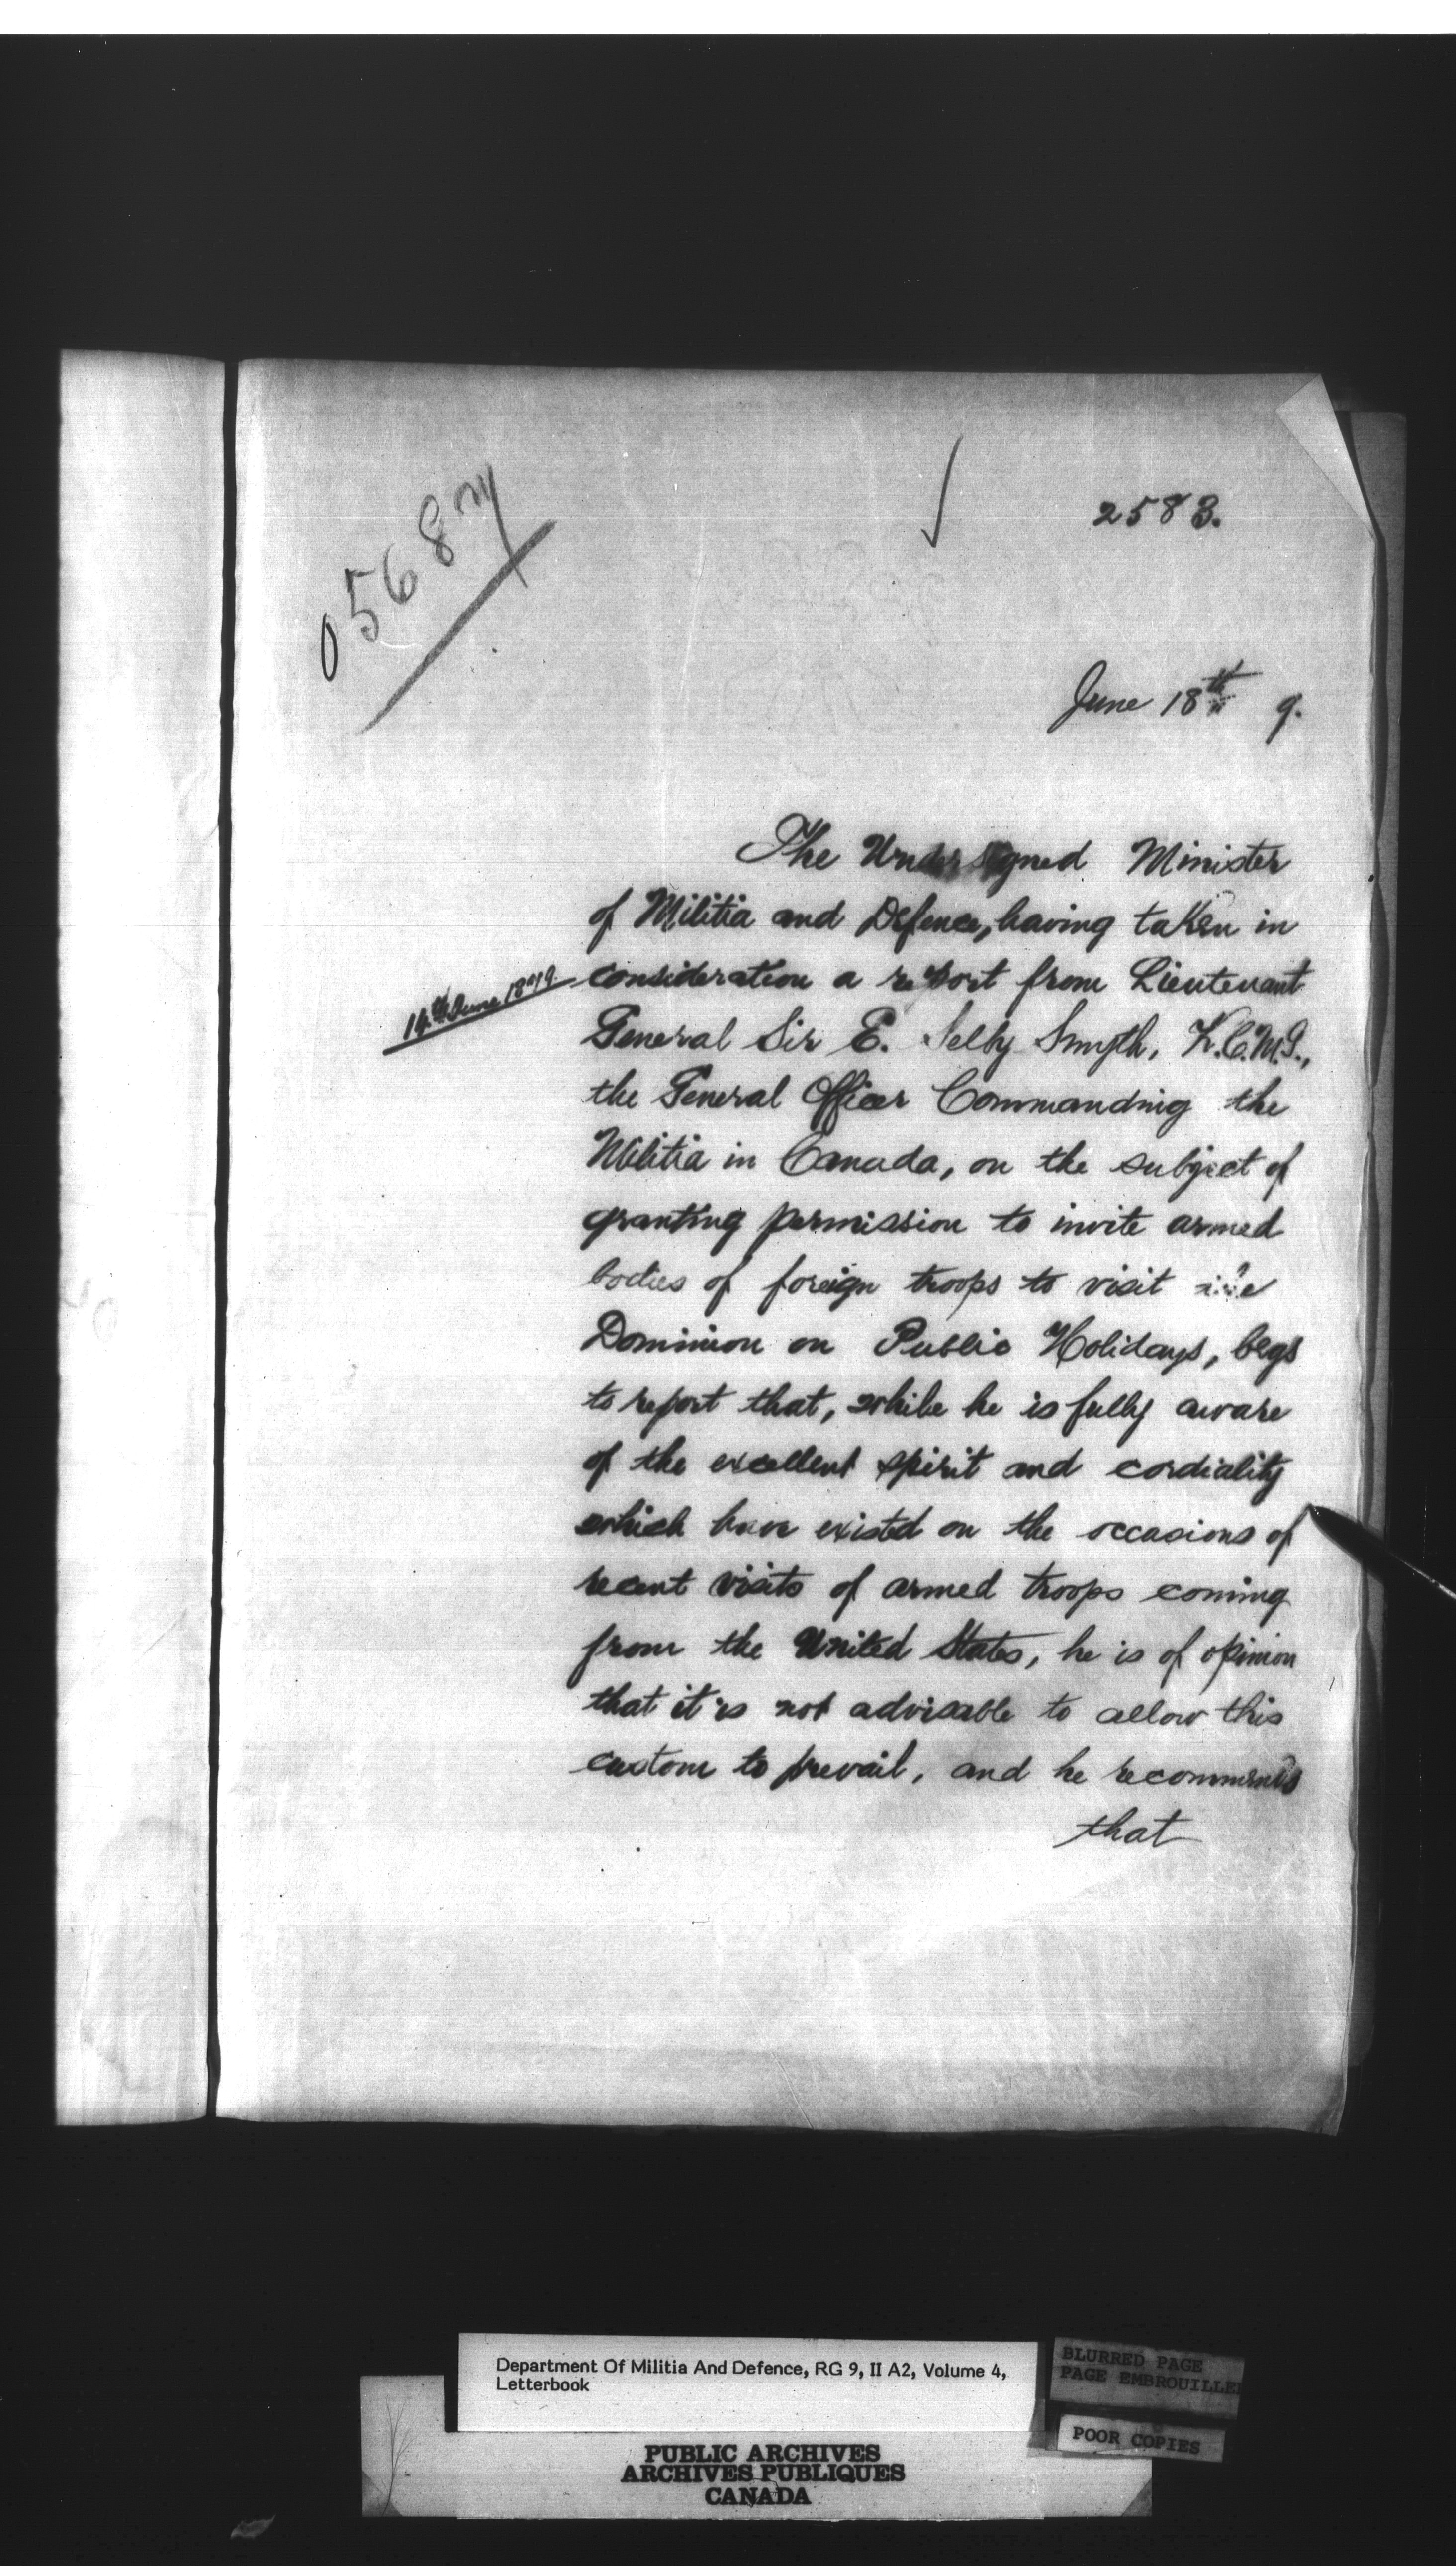 05687
2583.
June 18th 9.
The Undersigned Minister
of Militia and Defence, having taken in
14th June 1879.
consideration a report from Lieutenant
General Sir E. Selby Smyth, K.C.M.G.,
the General Officer Commanding the
Militia in Canada, on the subject of
granting permission to invite armed
bodies of foreign troops to visit the
Dominion on Public Holidays, begs
to report that, while he is fully aware
of the excellent spirit and cordiality
which have existed on the occasions of
recent visits of armed troops coming
from the United States, he is of opinion
that it is not advisable to allow this
custom to prevail, and he recommends
that
Department Of Militia And Defence, RG 9, II A2, Volume 4,
Letterbook
BLURRED PAGE
PAGE EMBROUILLEE
POOR COPIES
PUBLIC ARCHIVES
ARCHIVES PUBLIQUES
CANADA